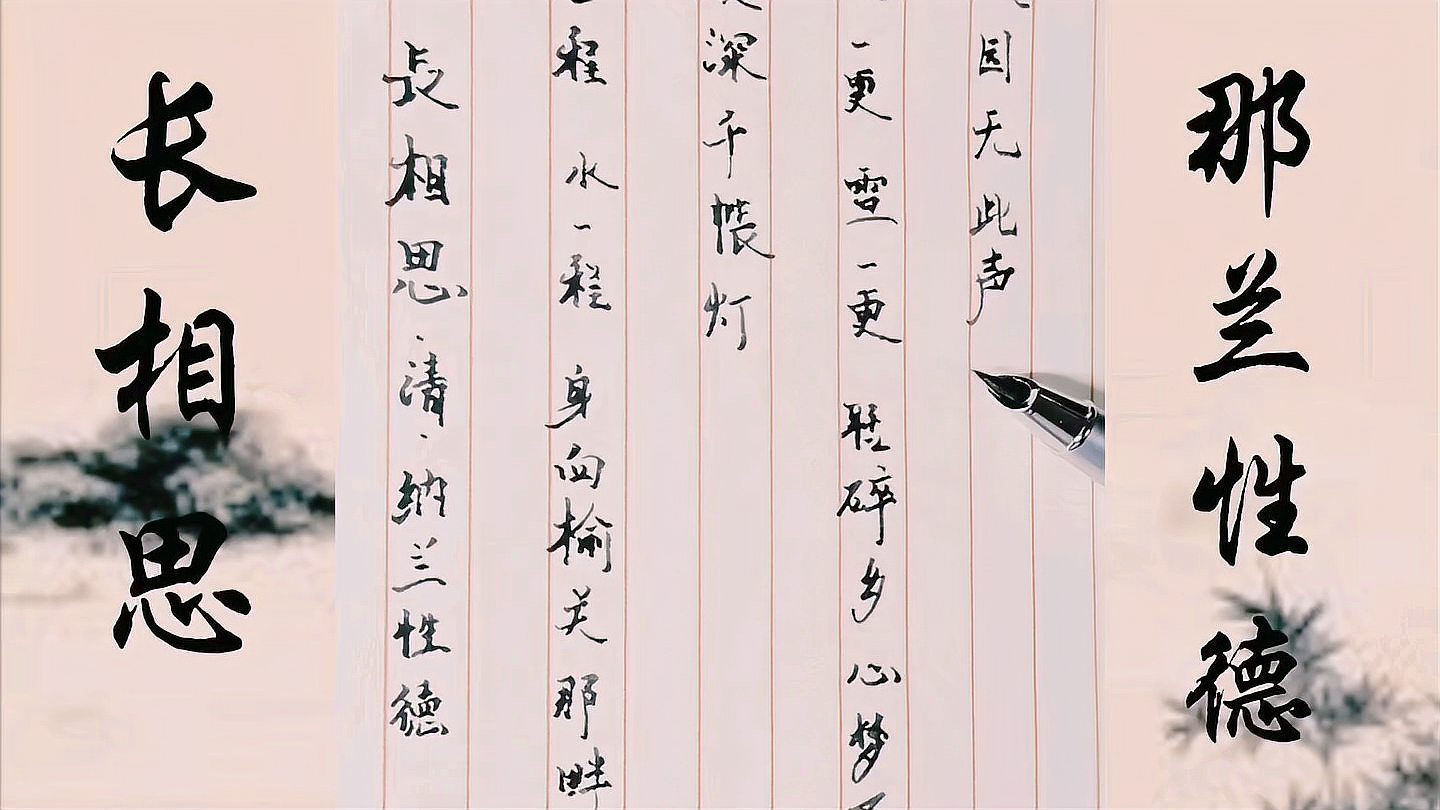 长相思
长相思·清·纳兰性德
程 水一程 身向榆关那畔
深千帐灯
一更 雪一更 聒碎乡心梦
园无此声
那兰性德